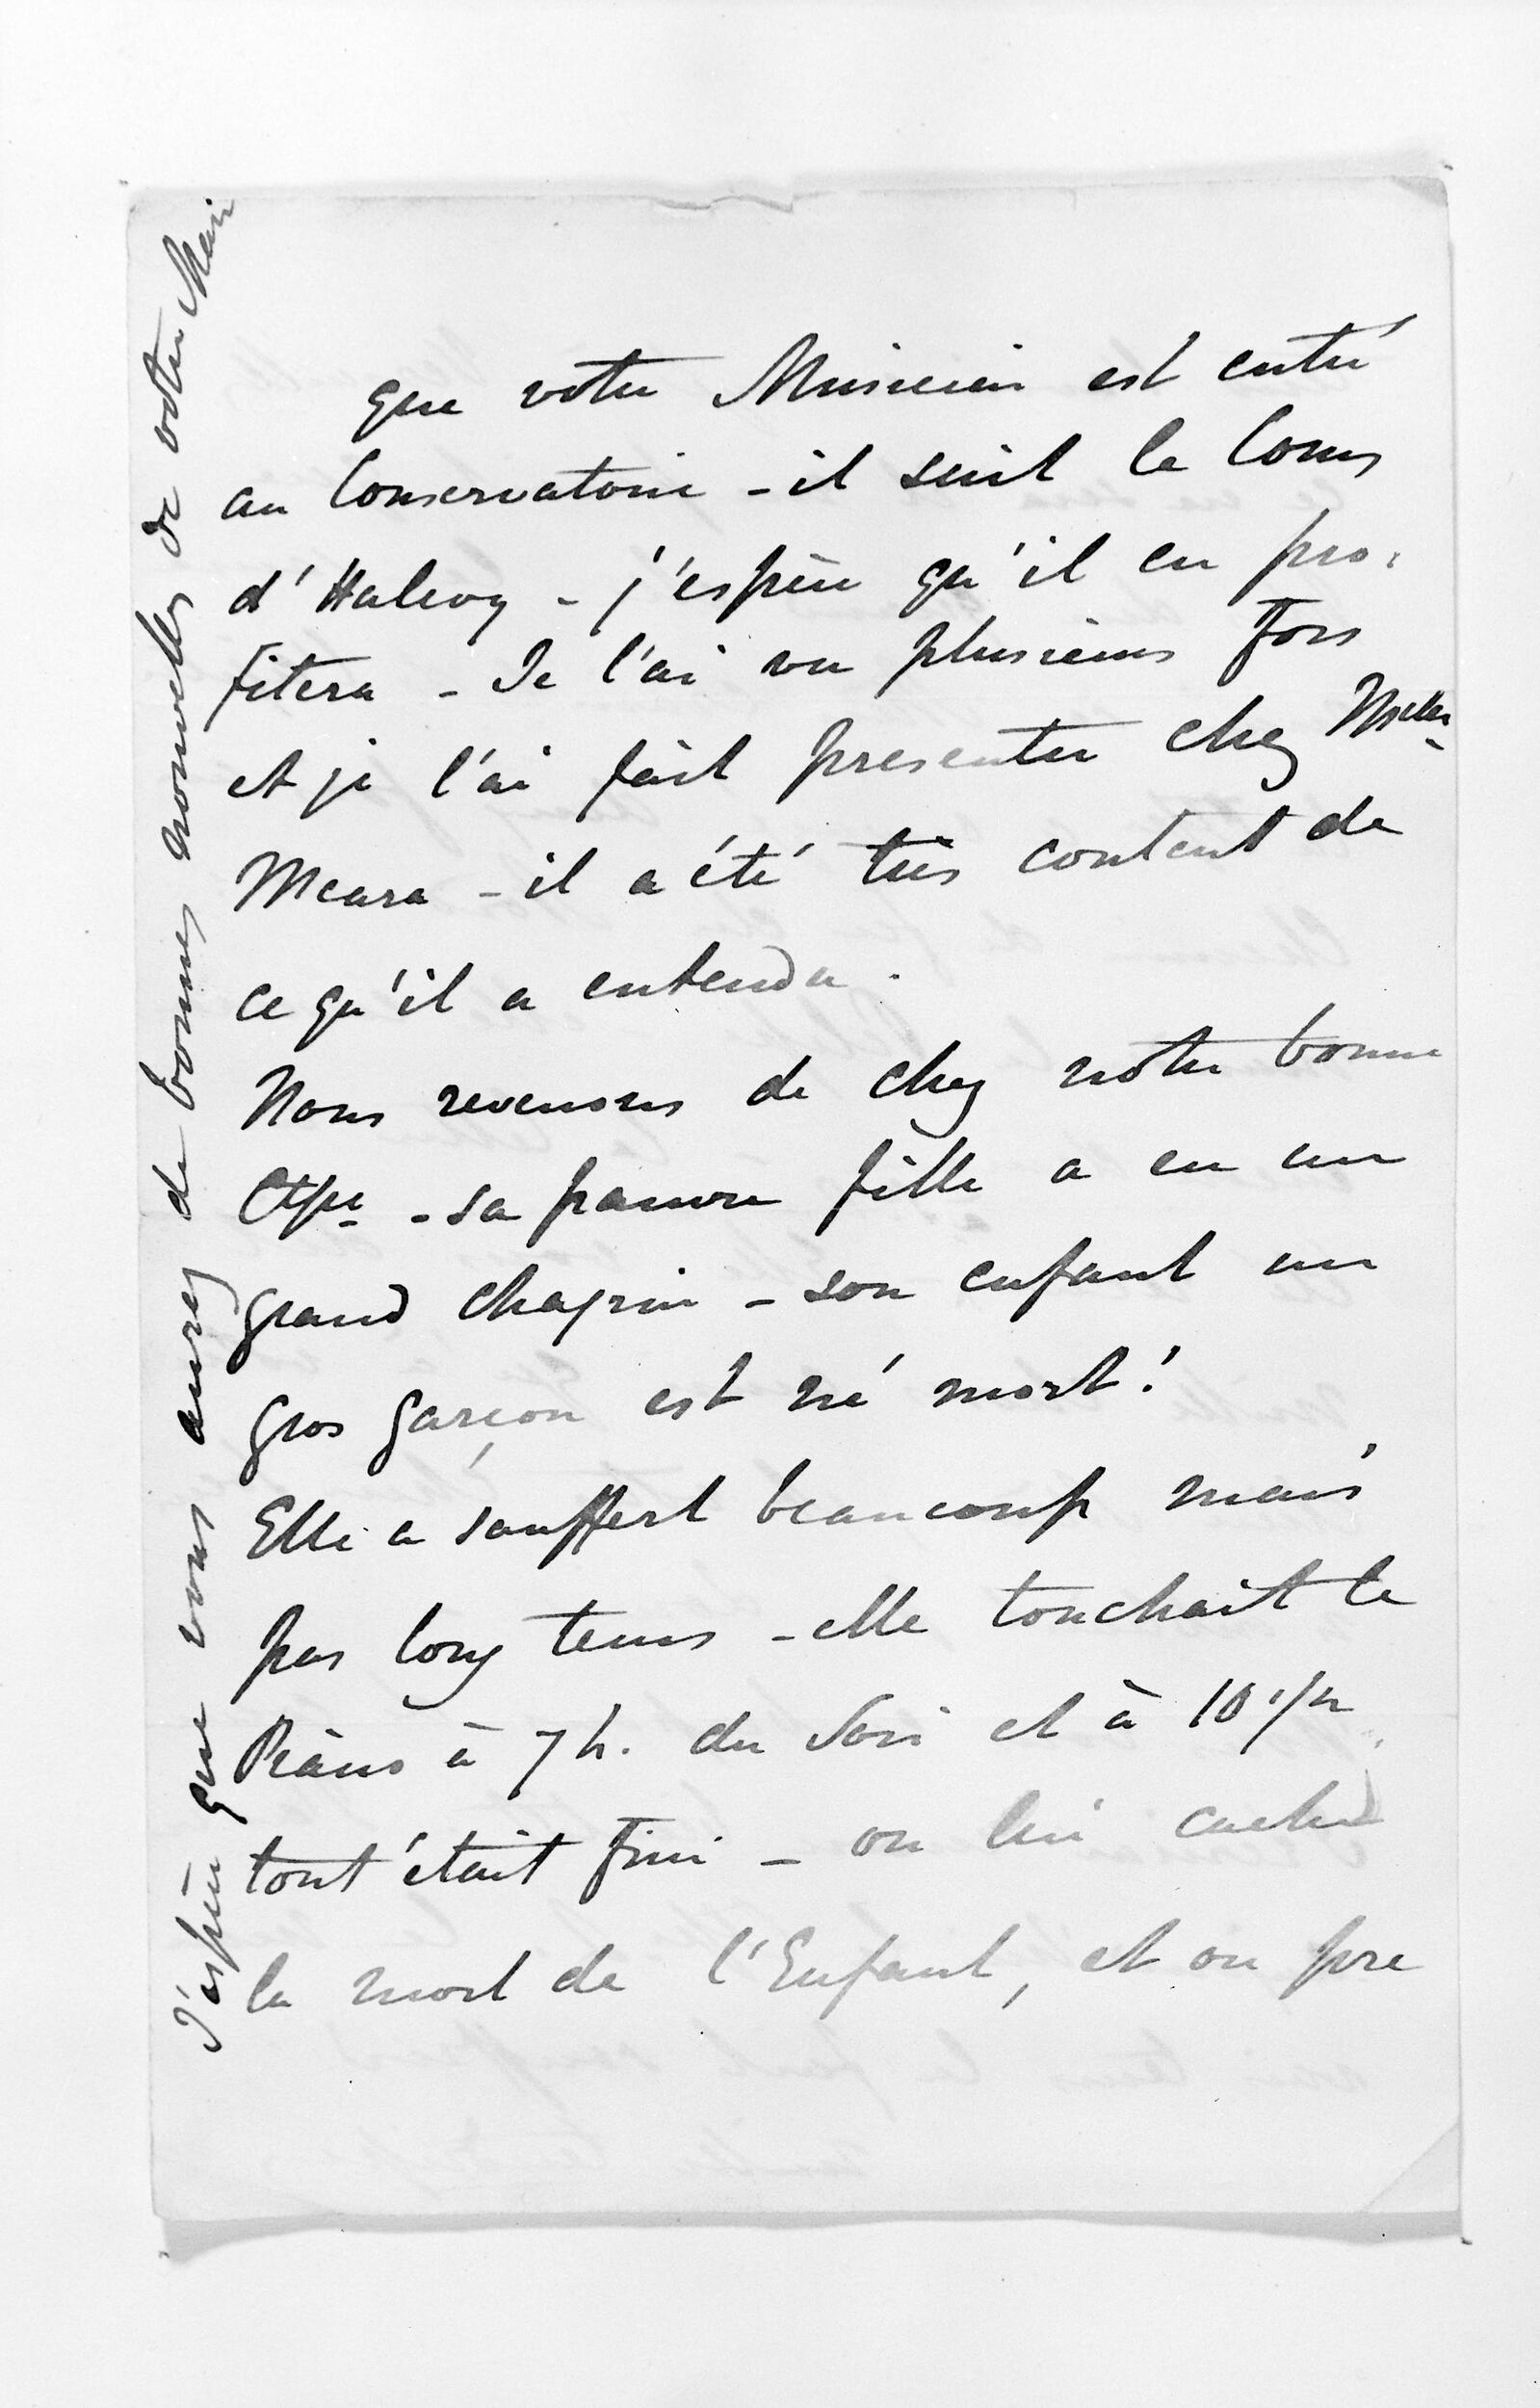 que votre Musicien est entré
au Conservatoire - il suit le Cours
d'Halevy - j'espère qu'il en pro-
fitera - Je l'ai vu plusieurs fois
et je l'ai fait presenter chez Mselles
Meara - il a été très content de
ce qu'il a entendu.
Nous revenons de chez notre bonne
Ctsse - sa pauvre fille a eu un
grand chagrin - son enfant un
gros garçon est né mort!
Elle a souffert beaucoup mais
pas long tems - elle touchait le
Piano à 7 h. du Soir et à 10 1/2
tout était fini - on lui cache
la mort de l'Enfant, et on pre
J'espère que vous aurez de bonnes nouvelles de votre Mari